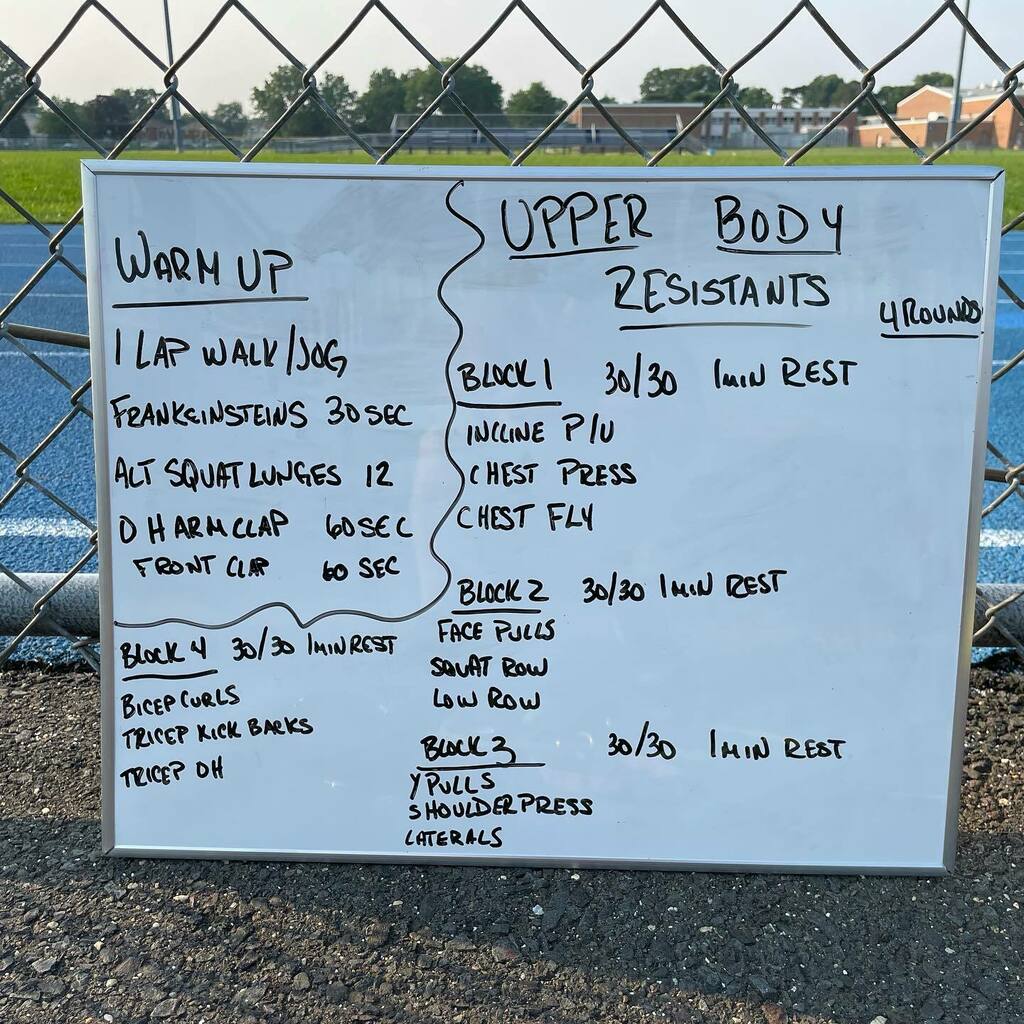 WARM UP
1 LAP WALK/JOG
FRANKEINSTEINS 30 SEC
ALT SQUAT LUNGES 12
OH ARM CLAP 60 SEC
FRONT CLAP 60 SEC
UPPER BODY
RESISTANTS
4 ROUNDS
BLOCK 1 30/30 1 MIN REST
INCLINE P/U
CHEST PRESS
CHEST FLY
BLOCK 2 30/30 1 MIN REST
FACE PULLS
SQUAT ROW
LOW ROW
BLOCK 3 30/30 1 MIN REST
Y PULLS
SHOULDER PRESS
LATERALS
BLOCK 4 30/30 1 MIN REST
BICEP CURLS
TRICEP KICK BACKS
TRICEP OH